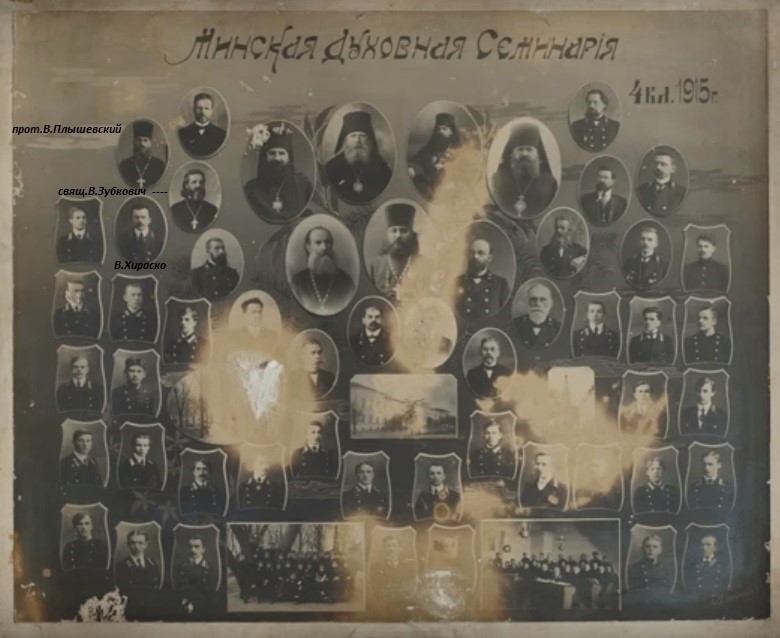 Минская Духовная Семинарія
4 кл. 1915 г.
прот.В.Плышевский
свящ.В.Зубкович ----
В.Хираско